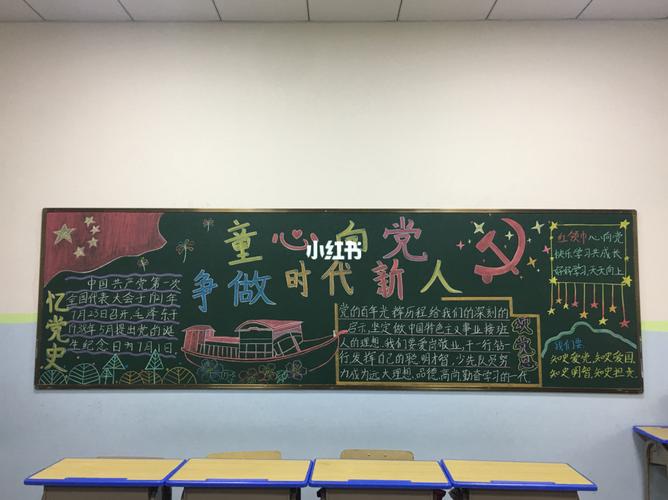 童心向党
小红书
争做时代新人
忆党史
中国共产党第一次
全国代表大会于1921年
7月23日召开,毛泽东于
1938年5月提出党的诞
生纪念日为7月1日。
党的百年光辉历程给我们的深刻的
启示,坚定做中国特色主义事业接班
人的理想。我们要爱岗敬业,干一行钻一
行发挥自己的聪明智,少先队员努
力成为远大理想、品德高尚勤奋学习的一代。
颂党恩
红领巾心向党
快乐学习共成长
好好学习天天向上
我们要
知史爱党,知史爱国,
知史明智,知史担责。